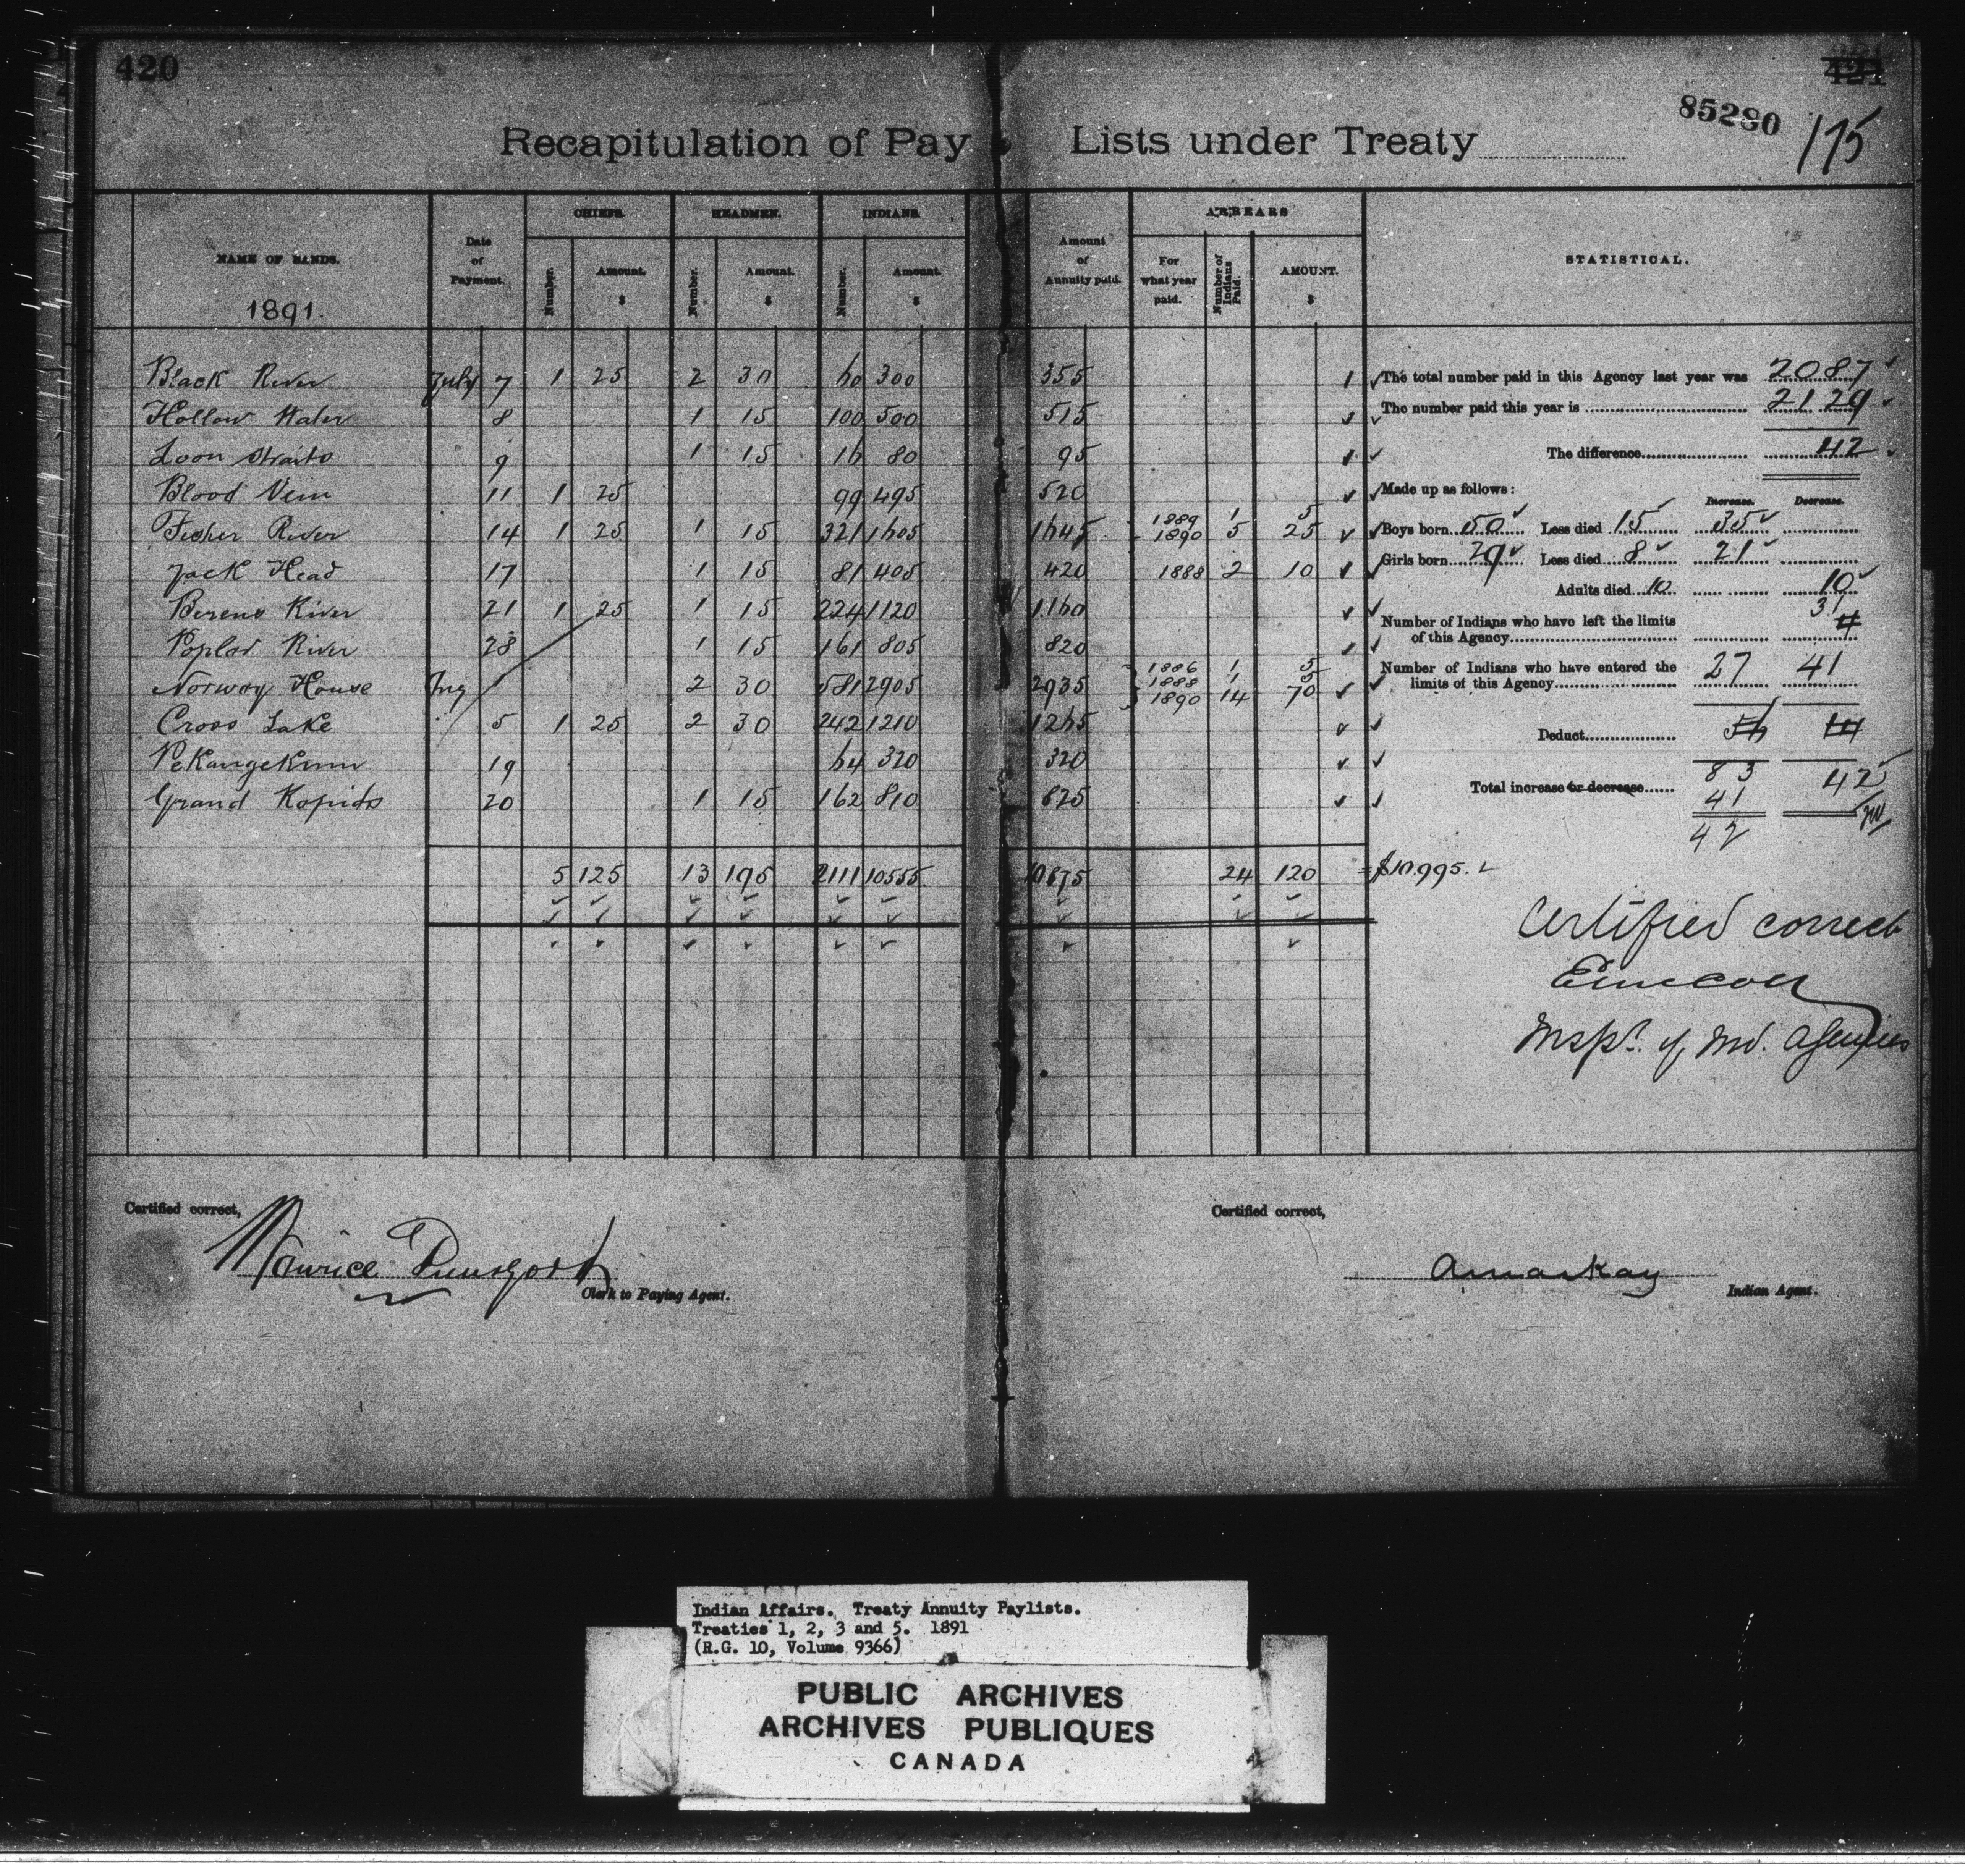 420
421
85280
175
Recapitulation of Pay Lists under Treaty
NAME OF BANDS. Date of Payment. CHIEFS. HEADMEN. INDIANS. Amount of Annuity paid. ARREARS STATISTICAL.
1891.
Number. Amount. $ Number. Amount. $ Number. Amount. $ For what year paid. Number of Indians Paid. AMOUNT. $
Black River July 7 1 25 2 30 60 300 355
Hollow Water 8 1 15 100 500 515
Loon Straits 9 1 15 16 80 95
Blood Vein 11 1 25 99 495 520
Fisher River 14 1 25 1 15 321 1605 1645 1889 1 5
1890 5 25
Jack Head 17 1 15 81 405 420 1888 2 10
Berens River 21 1 25 1 15 224 1120 1160
Poplar River 28 1 15 161 805 820
Norway House Aug 2 30 581 2905 2935 1886 1 5
1888 1 5
1890 14 70
Cross Lake 5 1 25 2 30 242 1210 1265
Pekangekum 19 64 320 320
Grand Rapids 20 1 15 162 810 825
5 125 13 195 2111 10555 10875 24 120 = $10.995.
The total number paid in this Agency last year was 2087
The number paid this year is 2129
The difference 42
Made up as follows: Increase. Decrease.
Boys born 50 Less died 15 35
Girls born 29 Less died 8 21
Adults died 10 10
Number of Indians who have left the limits
of this Agency 31
Number of Indians who have entered the
limits of this Agency 27 41
Deduct 56
83 42
Total increase or decrease
41
42
Certified correct
Inspr. of Ind. Agencies
Certified correct,
Maurice
Clerk to Paying Agent.
Certified correct,
A Mackay
Indian Agent.
Indian Affairs. Treaty Annuity Paylists.
Treaties 1, 2, 3 and 5. 1891
(R.G. 10, Volume 9366)
PUBLIC ARCHIVES
ARCHIVES PUBLIQUES
CANADA